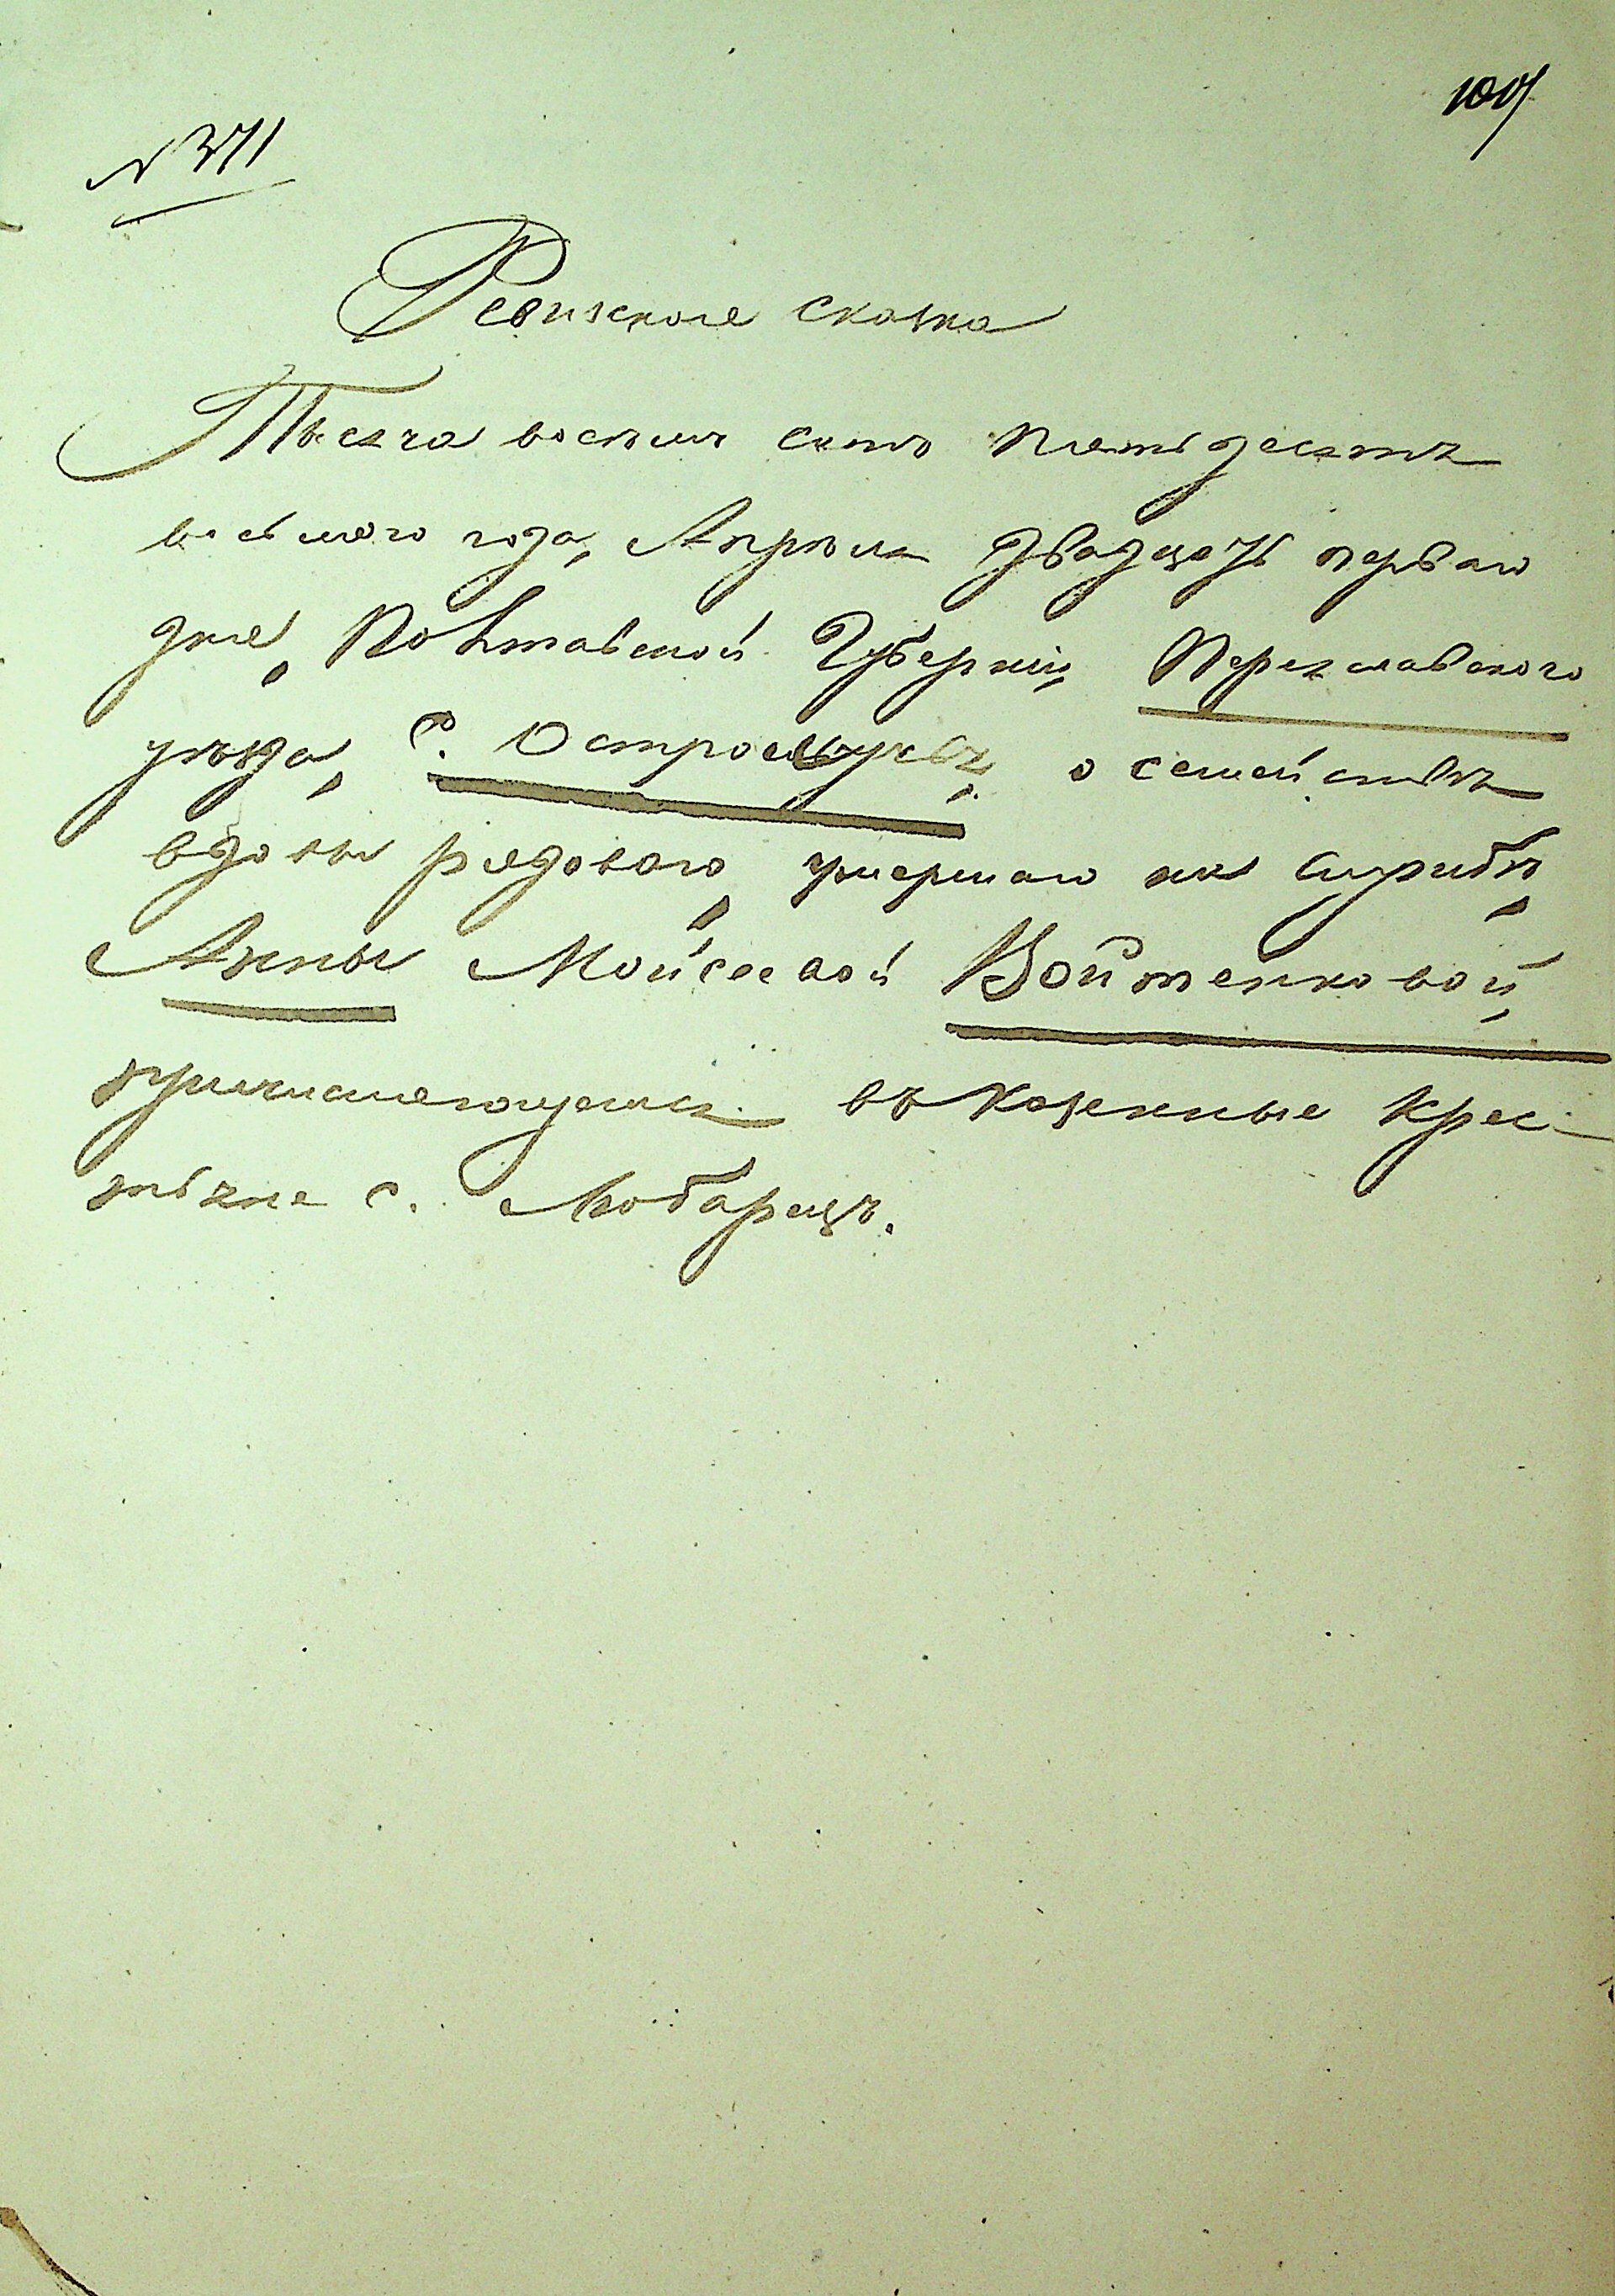 100
№ 371
Ревизская сказка
Тысяча восемь сотъ пятьдесятъ
восьмого года, Апреля двадцать перваго
дня, Полтавской Губерніи, Переяславского
уезда, С. Остролучья, о семействѣ
вдовы рядового, умершаго на службѣ,
Анны Мойсеевой Войтенковой,
причисляющемся въ казенные крес-
тьяне с. Любарецъ.